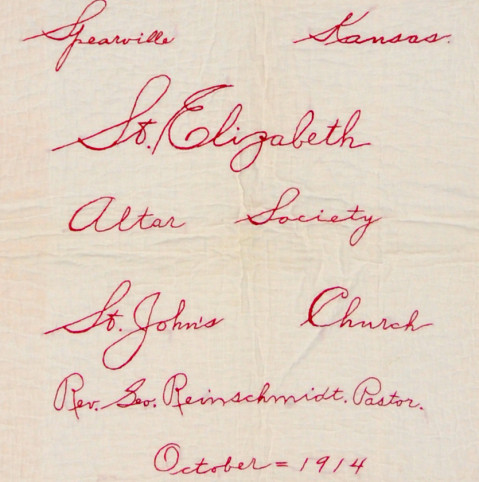 Spearville Kansas.
St. Elizabeth
Altar Society
St. John's Church
Rev. Geo. Reinschmidt. Pastor.
October = 1914